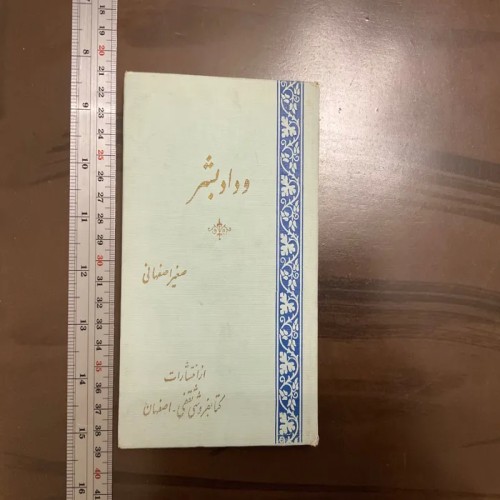 وداد بشر
صغیر اصفهانی
از انتشارات
کتابفروشی ثقفی - اصفهان
7
18
19
8
20
21
22
9
23
24
25
10
26
27
11
28
29
30
12
31
32
33
13
34
35
14
36
37
38
15
39
40
16
41